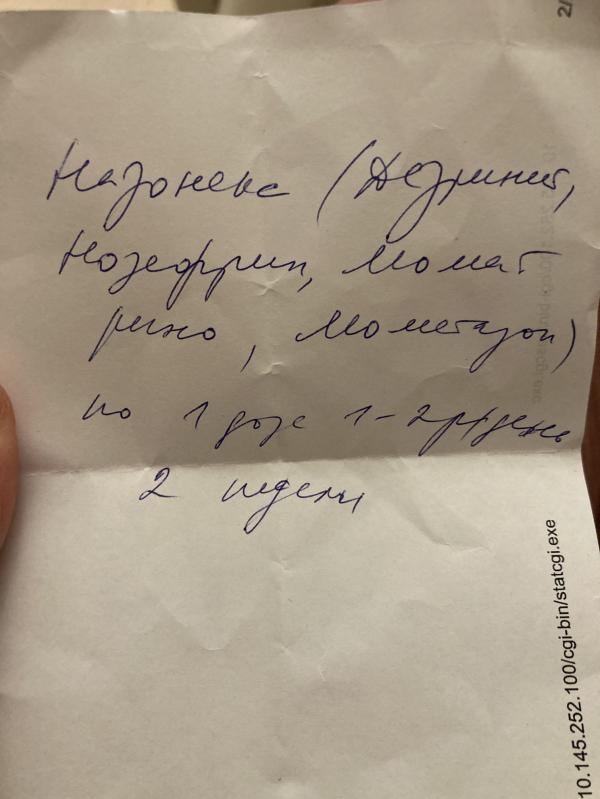 2/
Назонекс (Дезринит,
Нозефрин, Момат
рино, Мометазон)
по 1 дозе 1-2 р/день
2 недели
10.145.252.100/cgi-bin/statcgi.exe